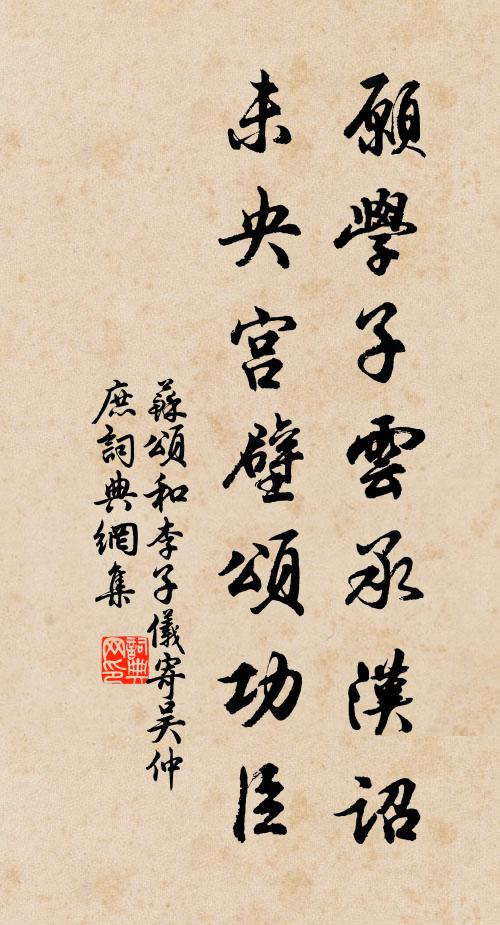 願學子雲承漢詔
未央宮壁頌功臣
蘇頌和李子儀寄吴仲
庶詞典網集
詞典
网印